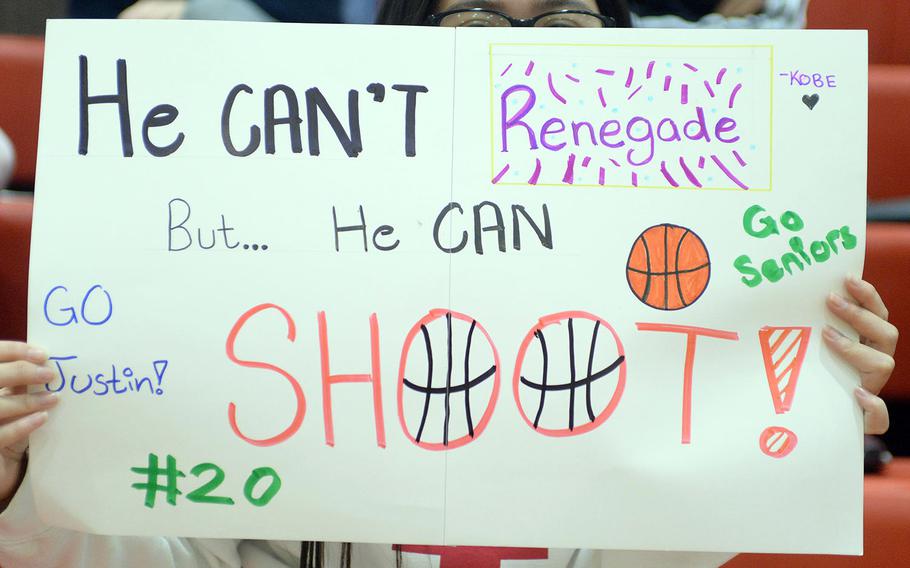 He CAN'T
Renegade
-KOBE
But... He CAN
Go
Seniors
GO
Justin!
SHOOT!
#20